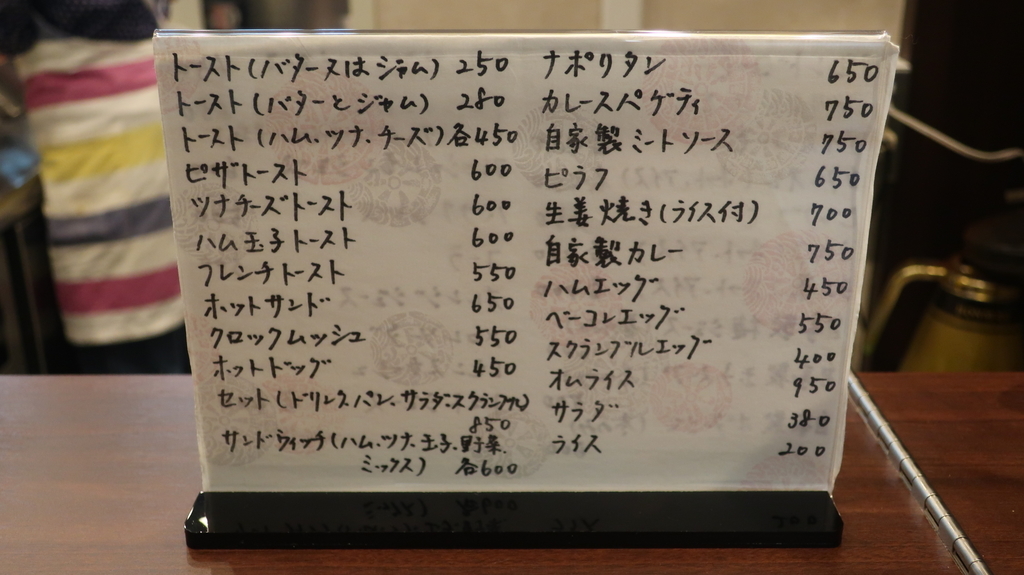 トースト(バター又はジャム) 250
トースト(バターとジャム) 280
トースト(ハム、ツナ、チーズ)各450
ピザトースト 600
ツナチーズトースト 600
ハム玉子トースト 600
フレンチトースト 550
ホットサンド 650
クロックムッシュ 550
ホットドッグ 450
セット(ドリンク、パン、サラダ、スクランブル)
850
サンドウィッチ(ハム、ツナ、玉子、野菜、
ミックス) 各600
ナポリタン 650
カレースパゲティ 750
自家製ミートソース 750
ピラフ 650
生姜焼き(ライス付) 700
自家製カレー 750
ハムエッグ 450
ベーコンエッグ 550
スクランブルエッグ 400
オムライス 950
サラダ 380
ライス 200